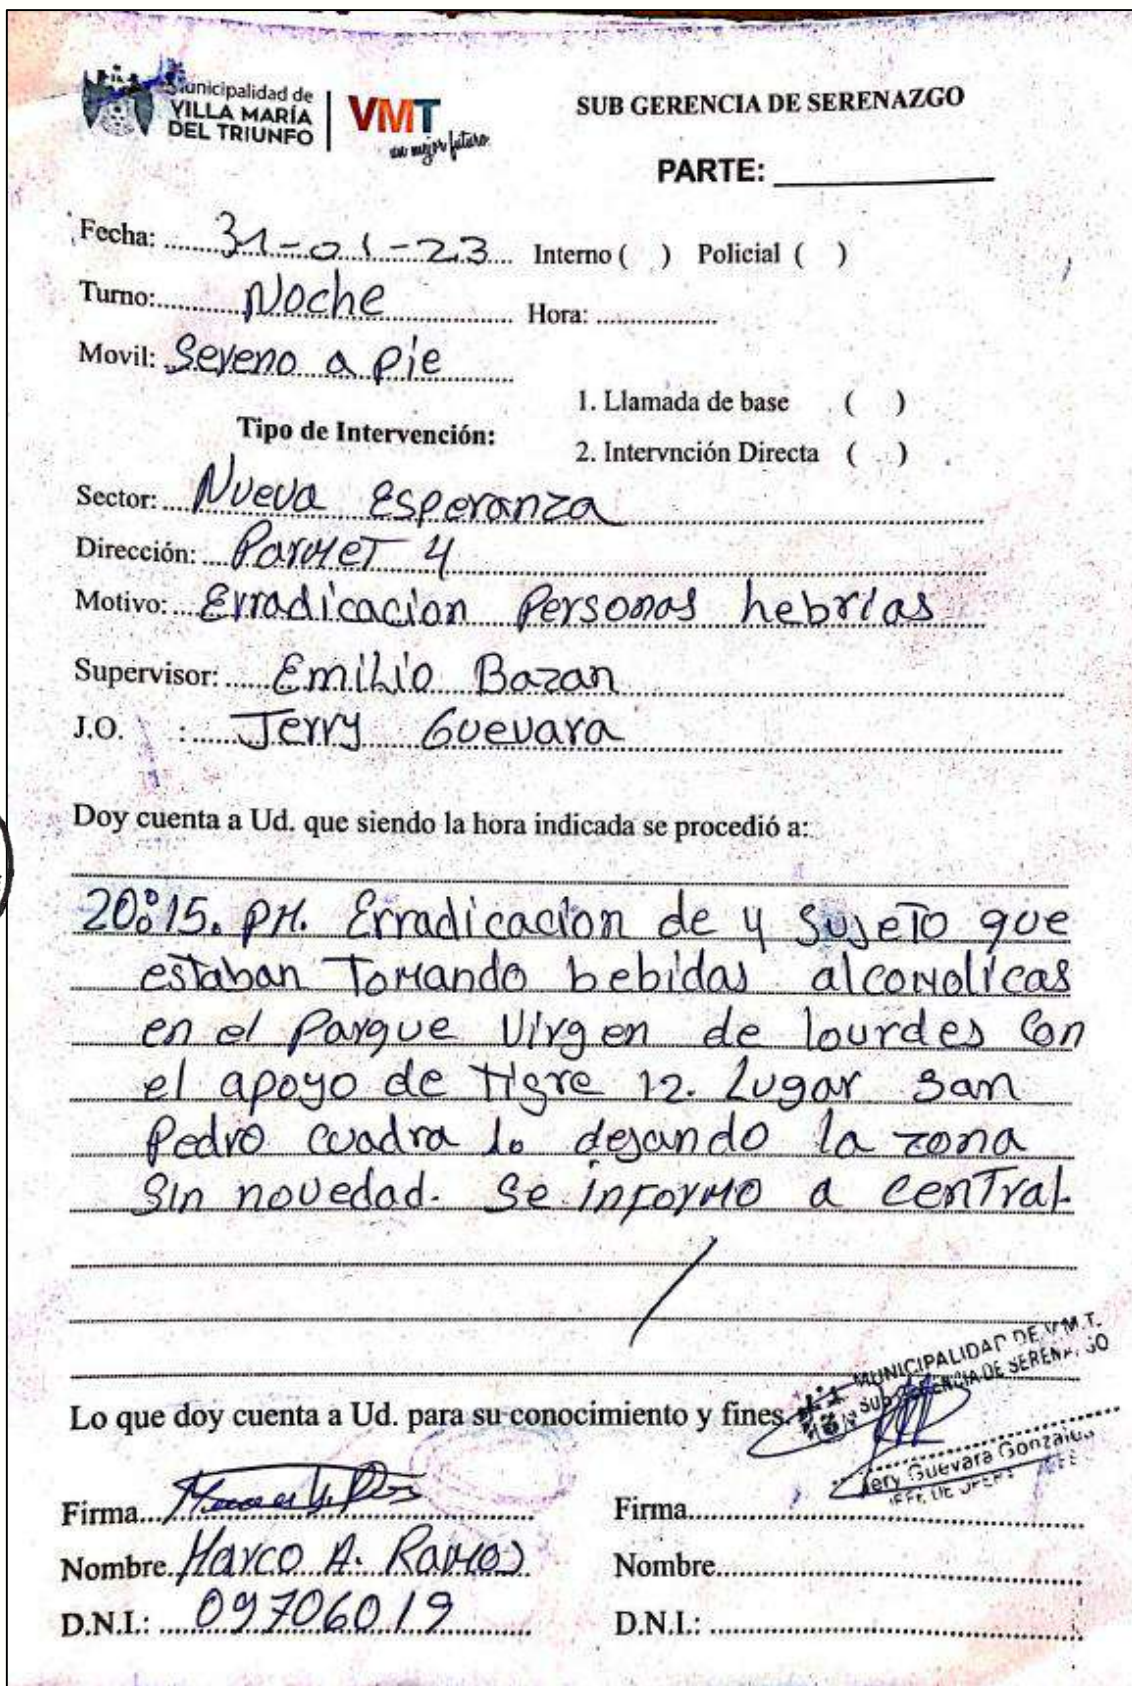 Municipalidad de
VILLA MARÍA
DEL TRIUNFO
VMT
un mejor futuro
SUB GERENCIA DE SERENAZGO
PARTE:
Fecha: 31-01-23 Interno ( ) Policial ( )
Turno: Noche Hora:
Movil: Sereno a pie
1. Llamada de base ( )
Tipo de Intervención:
2. Intervnción Directa ( )
Sector: Nueva Esperanza
Dirección: Parmet 4
Motivo: Erradicacion Personas hebrias
Supervisor: Emilio Bazan
J.O. : Jerry Guevara
Doy cuenta a Ud. que siendo la hora indicada se procedió a:
20:15. PM. Erradicacion de 4 Sujeto que
estaban Tomando bebidas alcoholicas
en el Parque Virgen de lourdes Con
el apoyo de Tigre 12. Lugar San
Pedro cuadra 1. dejando la zona
Sin novedad. Se informo a central
Lo que doy cuenta a Ud. para su conocimiento y fines.
MUNICIPALIDAD DE V.M.T.
SUB GERENCIA DE SERENAZGO
Jery Guevara Gonzales
JEFE DE
Firma
Firma
Nombre Marco A. Ramos
Nombre
D.N.I.: 09706019
D.N.I.: